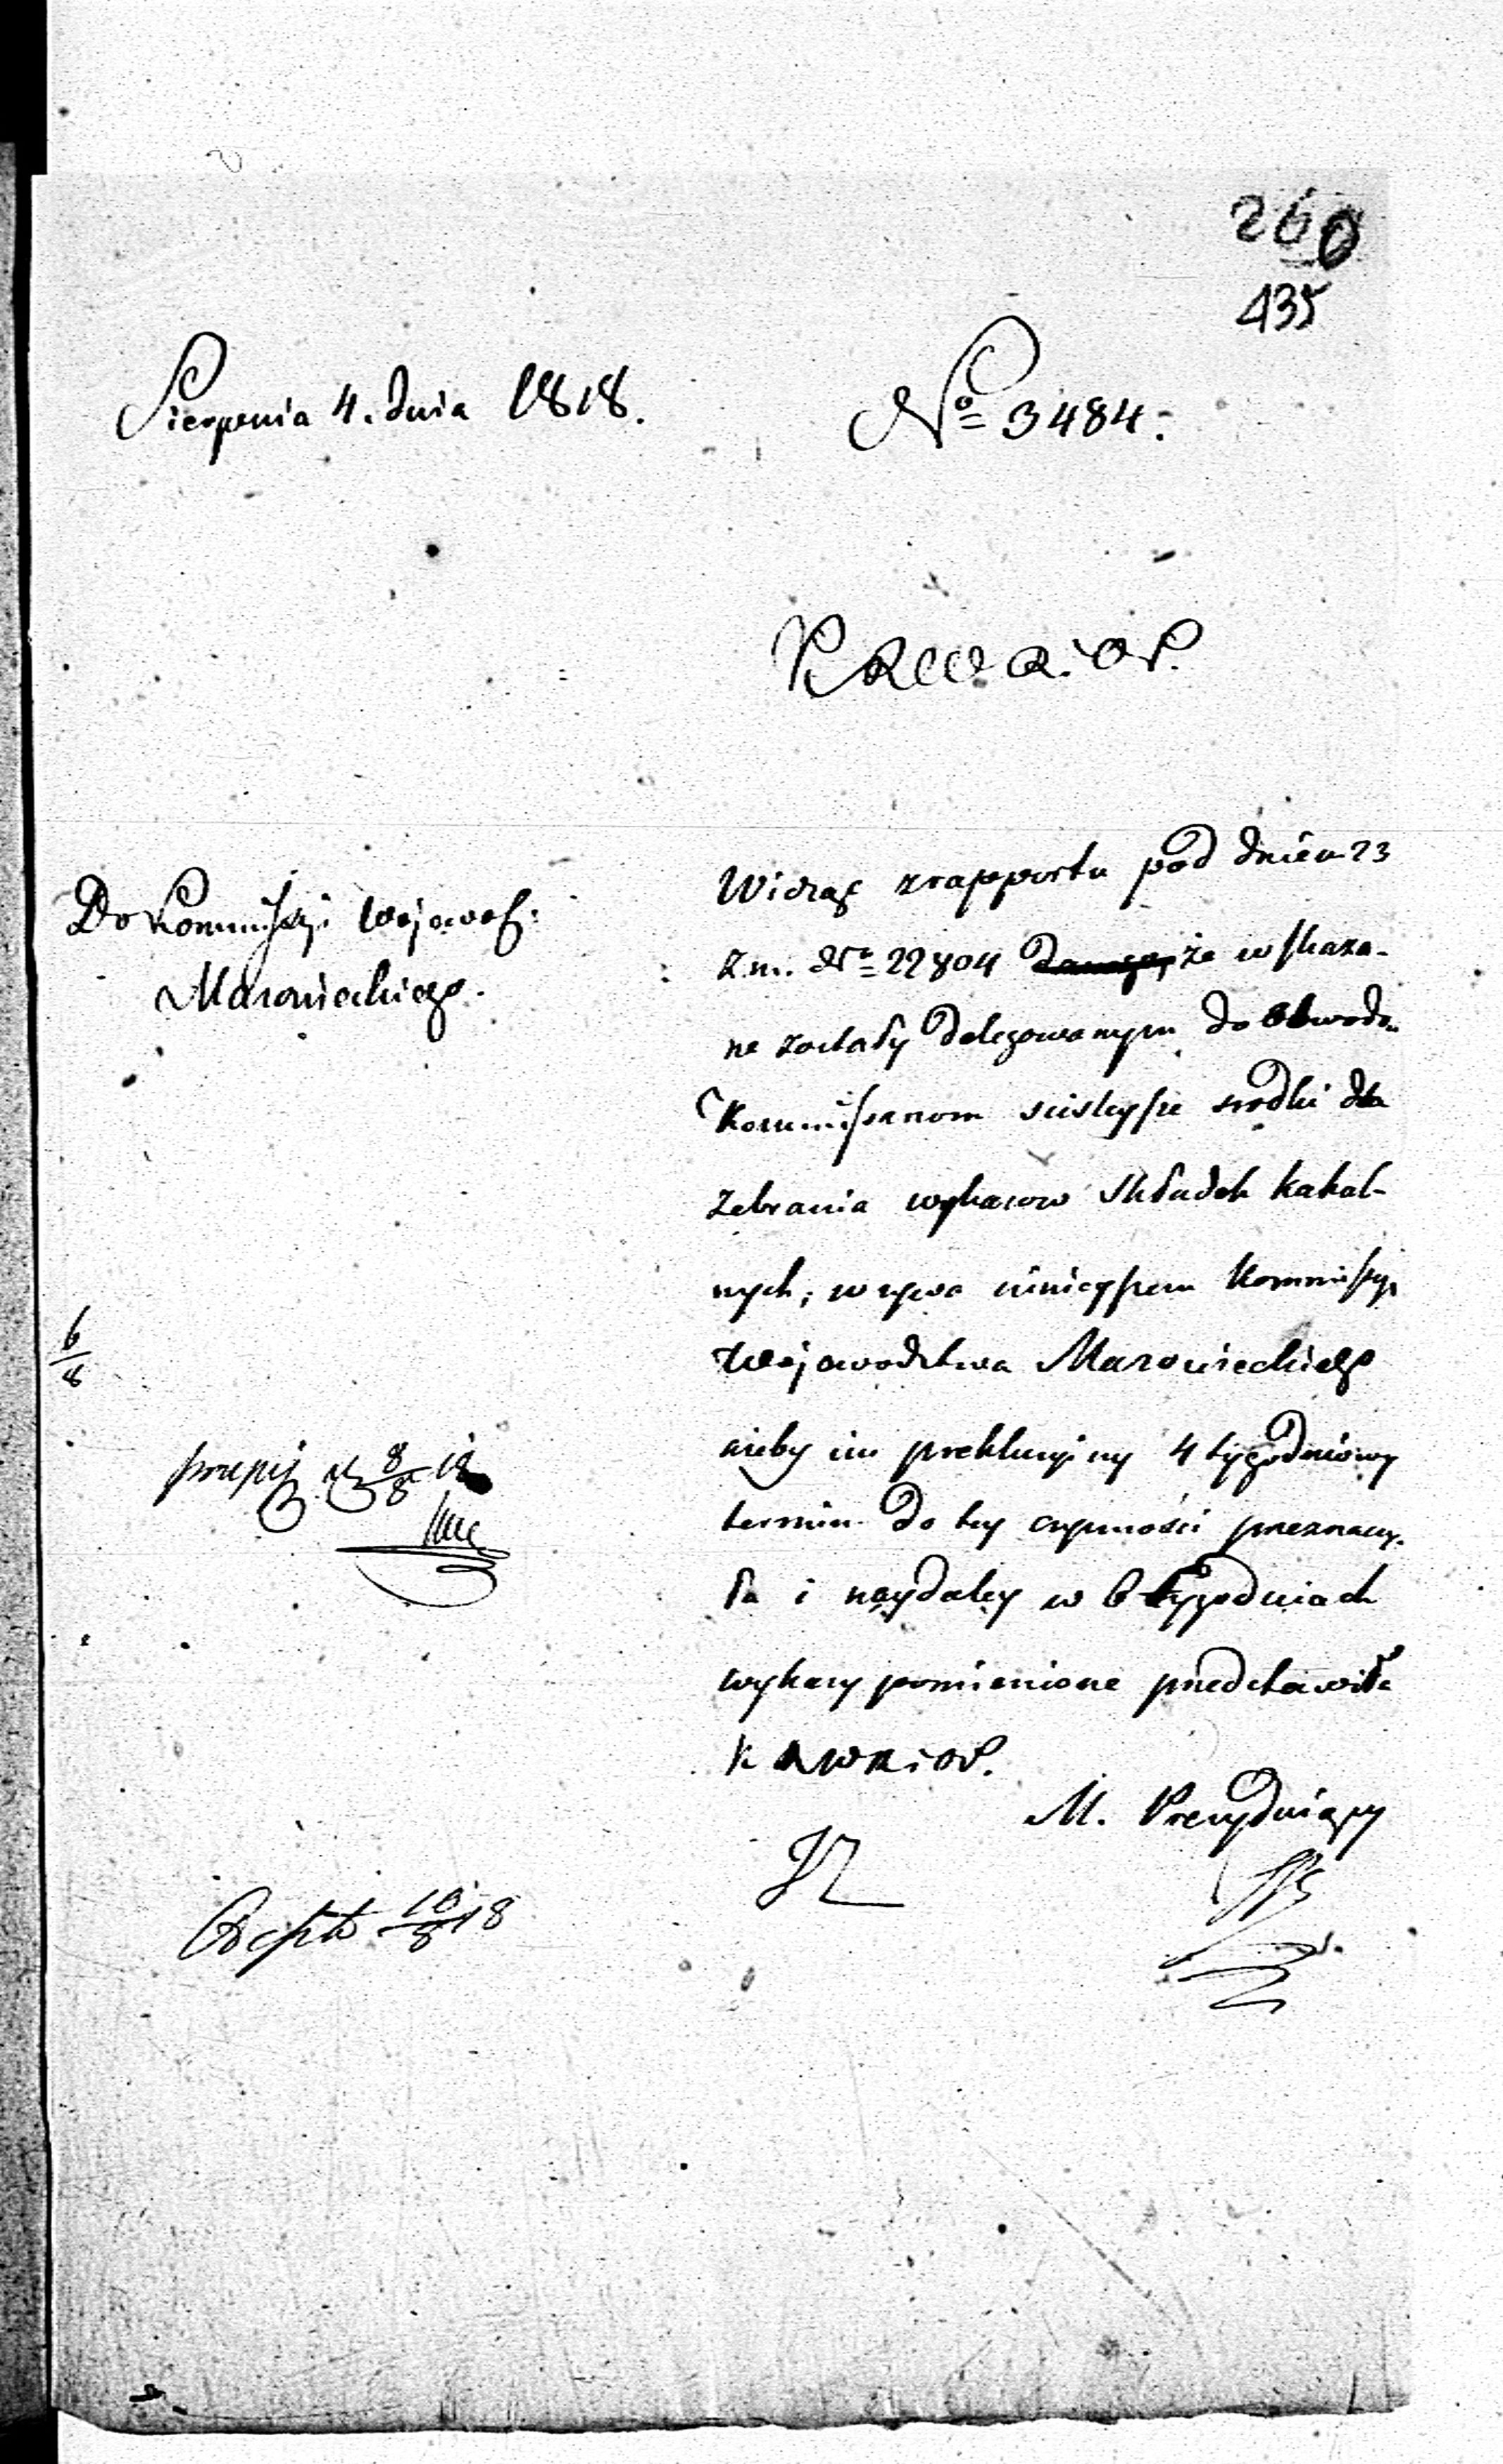 260
435
Sierpnia 4. dnia 1818.
No 3484.
K R W R. i O P.
Do Kommissyi Wojewod:
Mazowieckiego.
Widząc z rapportu pod dniem 23
z.m. No 22804 że wskaza-
ne zostały delegowanym do Obwodu
Kommissarzom scisleysze srodki dla
zebrania wykazow składek kahal-
nych, wzywa ninieyszem Kommissyą
Wojewodztwa Mazowieckiego
ażeby im prekluzyjny 4 tygodniowy
termin do tey czynności przeznaczy-
ła i naydaley w 6 tygodniach
wykazy pomienione przedstawiła
K R W R i O P.
M. Prezyduiący
6/8
przepis 8/8 18
10/8 18